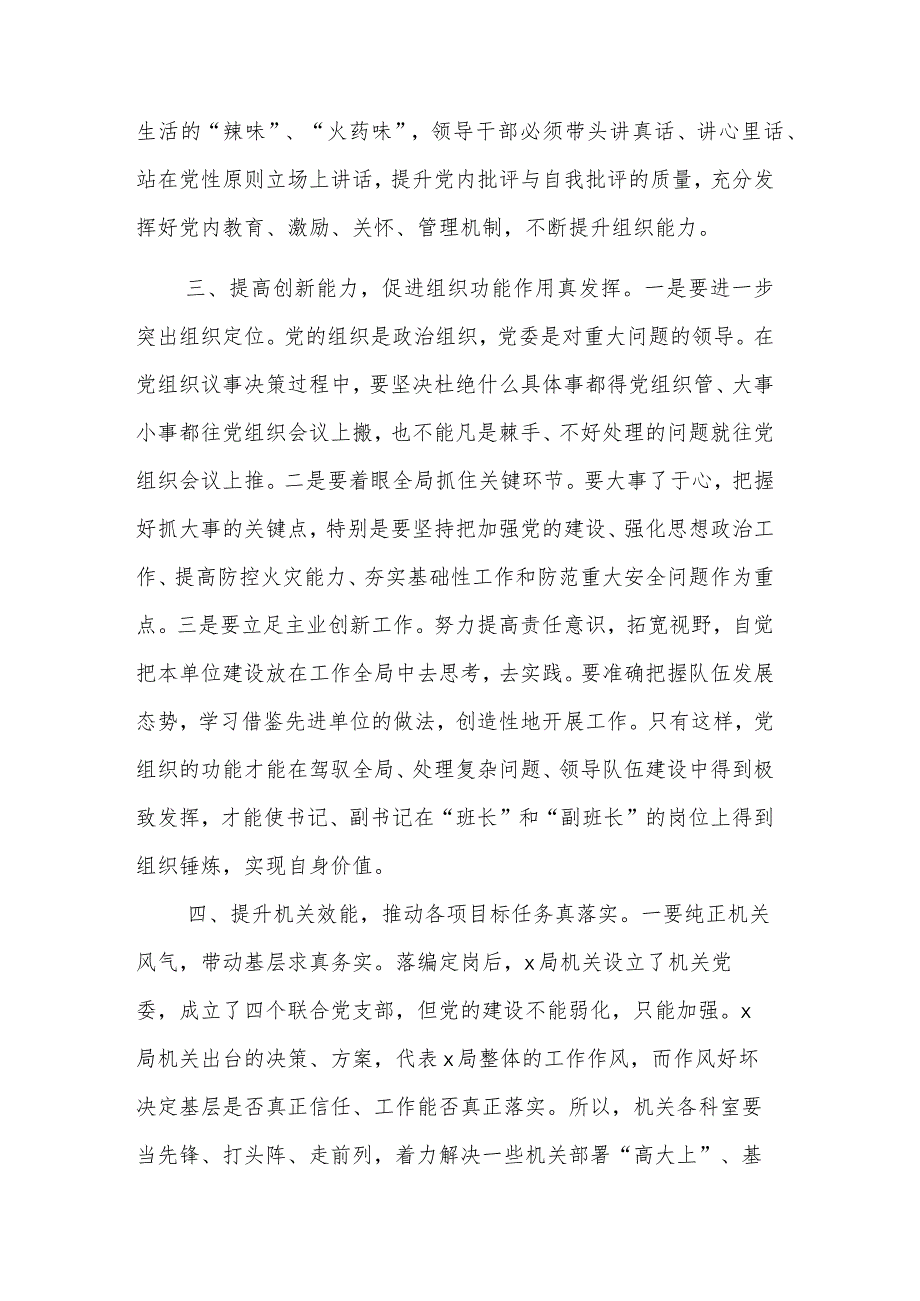 生活的“辣味”、“火药味”，领导干部必须带头讲真话、讲心里话、
站在党性原则立场上讲话，提升党内批评与自我批评的质量，充分发
挥好党内教育、激励、关怀、管理机制，不断提升组织能力。
三、提高创新能力，促进组织功能作用真发挥。一是要进一步
突出组织定位。党的组织是政治组织，党委是对重大问题的领导。在
党组织议事决策过程中，要坚决杜绝什么具体事都得党组织管、大事
小事都往党组织会议上搬，也不能凡是棘手、不好处理的问题就往党
组织会议上推。二是要着眼全局抓住关键环节。要大事了于心，把握
好抓大事的关键点，特别是要坚持把加强党的建设、强化思想政治工
作、提高防控火灾能力、夯实基础性工作和防范重大安全问题作为重
点。三是要立足主业创新工作。努力提高责任意识，拓宽视野，自觉
把本单位建设放在工作全局中去思考，去实践。要准确把握队伍发展
态势，学习借鉴先进单位的做法，创造性地开展工作。只有这样，党
组织的功能才能在驾驭全局、处理复杂问题、领导队伍建设中得到极
致发挥，才能使书记、副书记在“班长”和“副班长”的岗位上得到
组织锤炼，实现自身价值。
四、提升机关效能，推动各项目标任务真落实。一要纯正机关
风气，带动基层求真务实。落编定岗后，x局机关设立了机关党
委，成立了四个联合党支部，但党的建设不能弱化，只能加强。x
局机关出台的决策、方案，代表x局整体的工作作风，而作风好坏
决定基层是否真正信任、工作能否真正落实。所以，机关各科室要
当先锋、打头阵、走前列，着力解决一些机关部署“高大上”、基